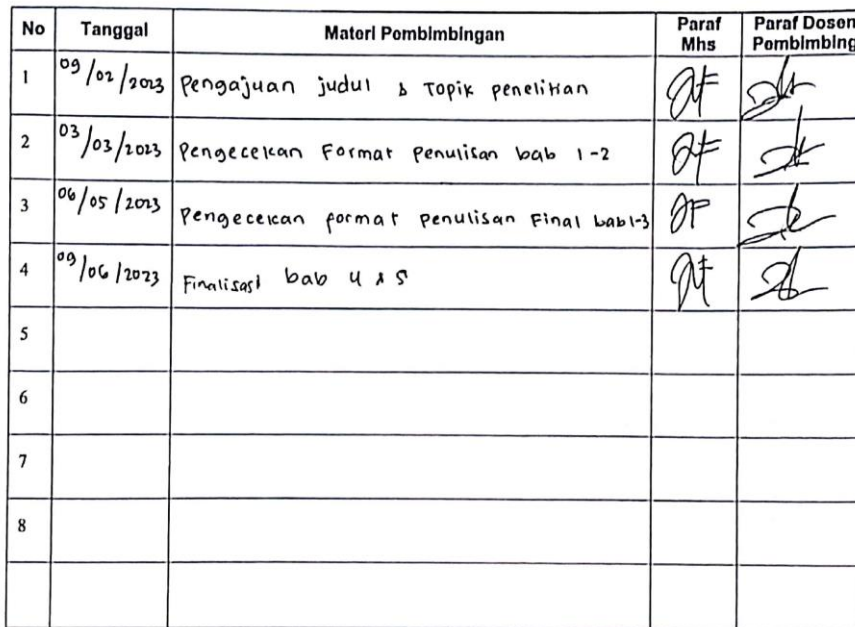 No Tanggal Materi Pembimbingan Paraf Mhs Paraf Dosen Pembimbing
1 09/02/2023 Pengajuan judul & Topik penelitian
2 03/03/2023 Pengecekan Format Penulisan bab 1-2
3 06/05/2023 Pengecekan format Penulisan Final bab 1-3
4 09/06/2023 Finalisasi bab 4 & 5
5
6
7
8